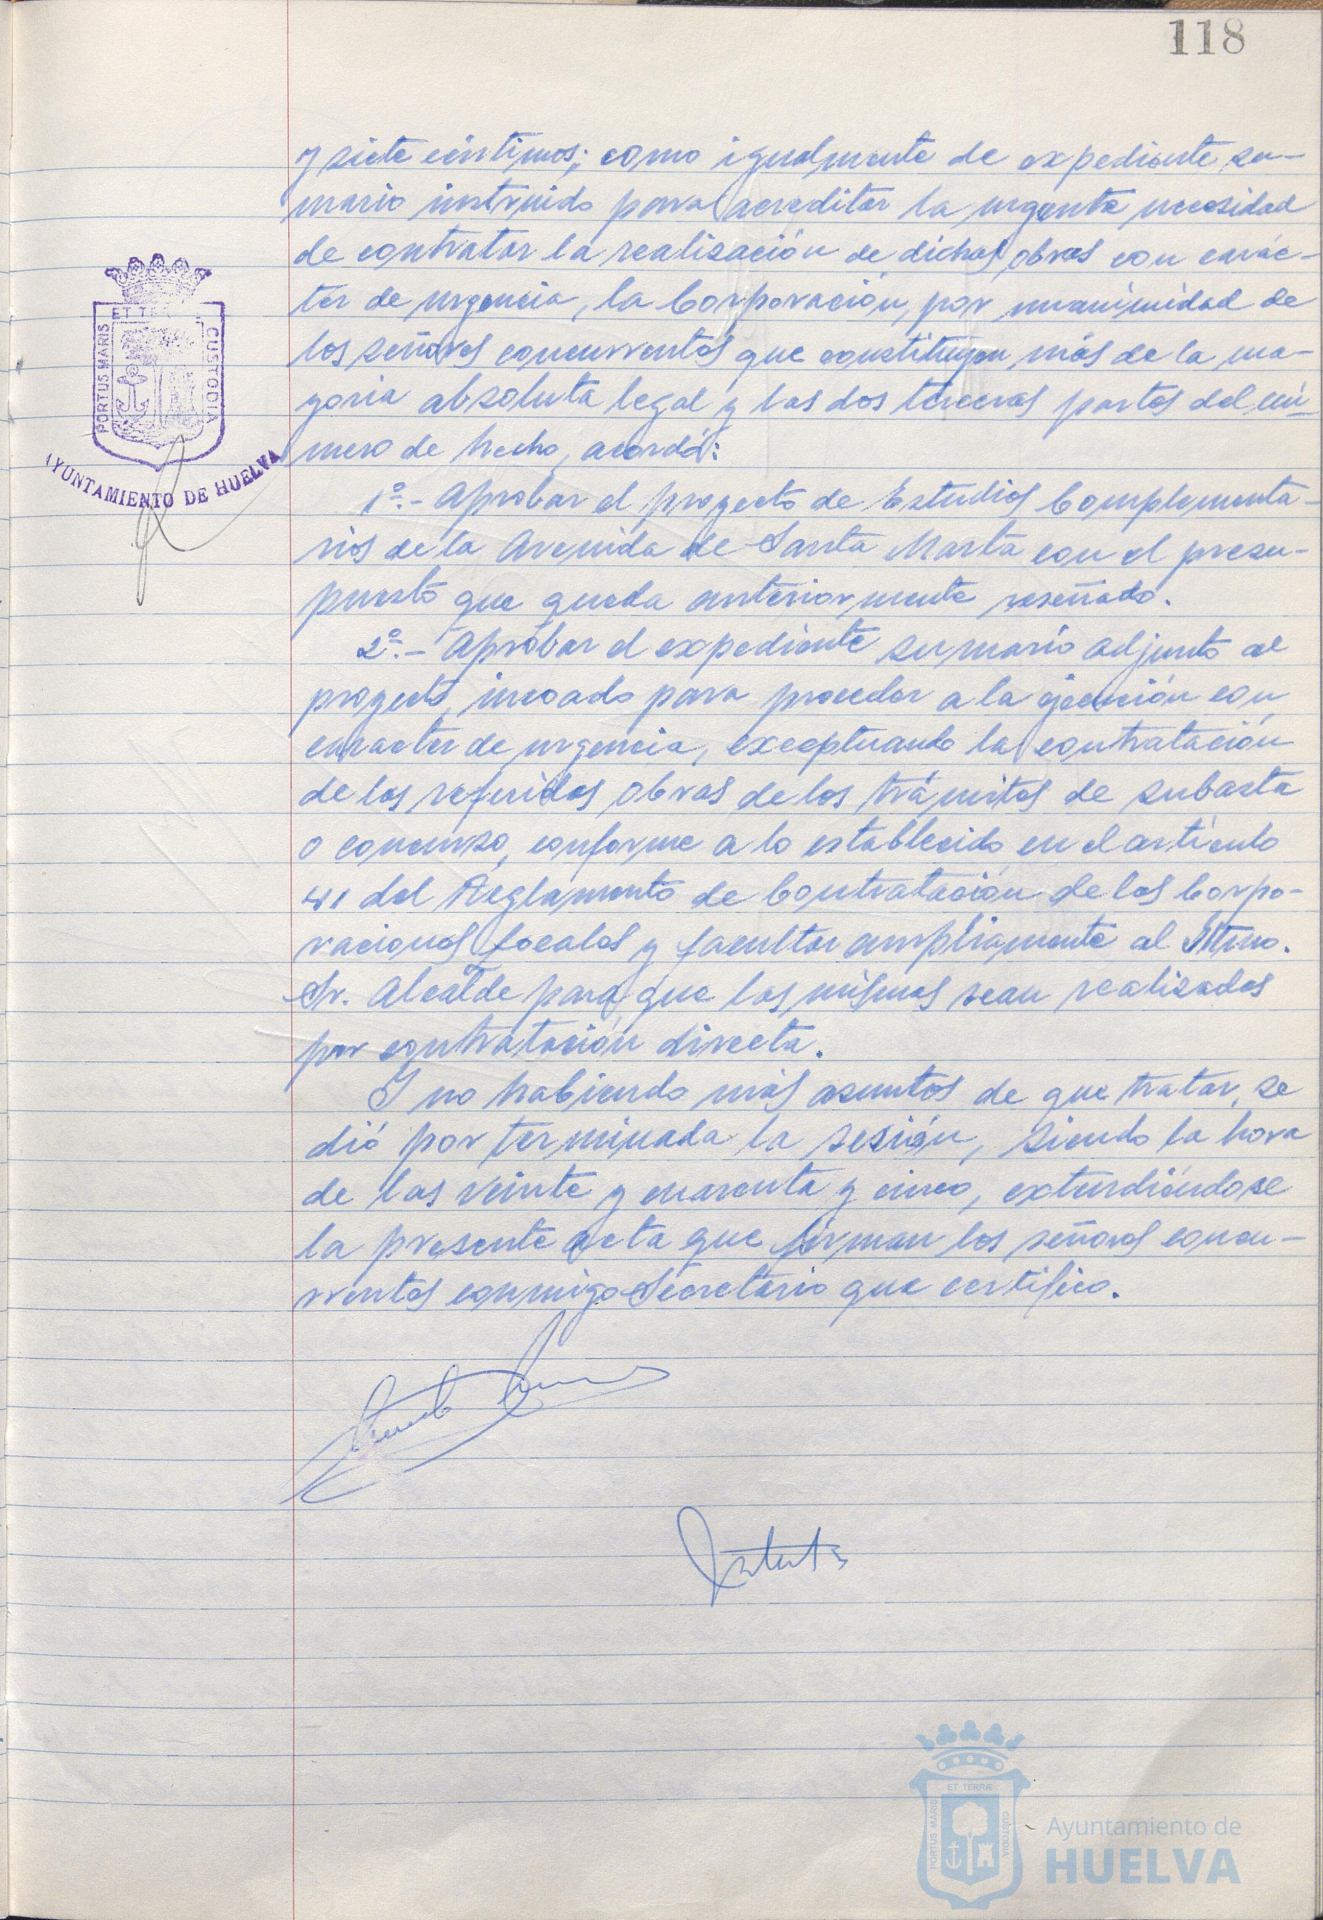 118
y siete céntimos; como igualmente de expediente su-
mario instruido para acreditar la urgente necesidad
de contratar la realización de dichas obras con carác-
ter de urgencia, la Corporación, por unanimidad de
los señores concurrentes que constituyen más de la ma-
yoria absoluta legal y las dos terceras partes del nú-
mero de hecho, acordó:
1º.- Aprobar el proyecto de Estudios Complementa-
rios de la Avenida de Santa Marta con el presu-
puesto que queda anteriormente reseñado.
2º.- Aprobar el expediente sumario adjunto al
proyecto, incoado para proceder a la ejecución con
caracter de urgencia, exceptuando la contratación
de las referidas obras de los trámites de subasta
o concurso, conforme a lo establecido en el artículo
41 del Reglamento de Contratación de las Corpo-
raciones Locales y facultar ampliamente al Iltmo.
Sr. Alcalde para que las mismas sean realizadas
por contratación directa.
Y no habiendo más asuntos de que tratar, se
dió por terminada la sesión, siendo la hora
de las veinte y cuarenta y cinco, extendiéndose
la presente acta que firman los señores concu-
rrentes conmigo Secretario que certifico.
PORTUS MARIS
ET TERRÆ
CUSTODIA
AYUNTAMIENTO DE HUELVA
PORTUS MARIS
ET TERRÆ
CUSTODIA
Ayuntamiento de
HUELVA